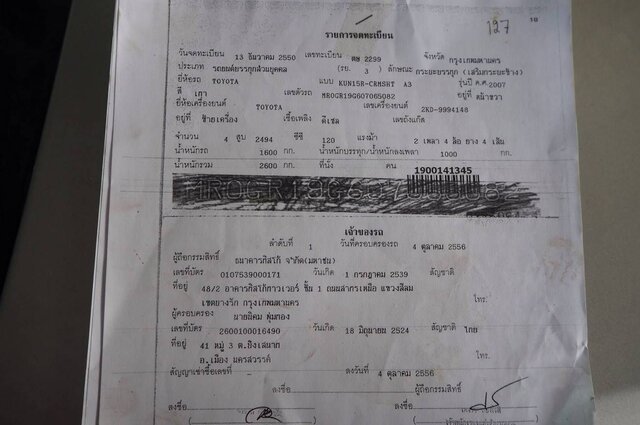 127
18
รายการจดทะเบียน
วันจดทะเบียน 13 ธันวาคม 2550 เลขทะเบียน ตษ 2299 จังหวัด กรุงเทพมหานคร
ประเภท รถยนต์บรรทุกส่วนบุคคล (รย. 3 ) ลักษณะ กระบะบรรทุก (เสริมกระบะข้าง)
ยี่ห้อรถ TOYOTA แบบ KUN15R-CRMSHT A3 รุ่นปี ค.ศ. 2007
สี เทา เลขตัวรถ MR0GR19G607065082 อยู่ที่ หน้าขวา
ยี่ห้อเครื่องยนต์ TOYOTA เลขเครื่องยนต์ 2KD-9994148
อยู่ที่ ซ้ายเครื่อง เชื้อเพลิง ดีเซล เลขถังแก๊ส
จำนวน 4 สูบ 2494 ซีซี 120 แรงม้า 2 เพลา 4 ล้อ ยาง 4 เส้น
น้ำหนักรถ 1600 กก. น้ำหนักบรรทุก/น้ำหนักลงเพลา 1000 กก.
น้ำหนักรวม 2600 กก. ที่นั่ง คน
1900141345
เจ้าของรถ
ลำดับที่ 1 วันที่ครอบครองรถ 4 ตุลาคม 2556
ผู้ถือกรรมสิทธิ์ ธนาคารทิสโก้ จำกัด(มหาชน)
เลขที่บัตร 0107539000171 วันเกิด 1 กรกฎาคม 2539 สัญชาติ
ที่อยู่ 48/2 อาคารทิสโก้ทาวเวอร์ ชั้น 1 ถนนสาทรเหนือ แขวงสีลม
เขตบางรัก กรุงเทพมหานคร โทร.
ผู้ครอบครอง นายนิคม พุ่มทอง
เลขที่บัตร 2600100016490 วันเกิด 18 มิถุนายน 2524 สัญชาติ ไทย
ที่อยู่ 41 หมู่ 3 ต.บึงเสนาท
อ.เมือง นครสวรรค์ โทร.
สัญญาเช่าซื้อเลขที่ - ลงวันที่ 4 ตุลาคม 2556
ลงชื่อ ผู้ถือกรรมสิทธิ์
ลงชื่อ ลงชื่อ